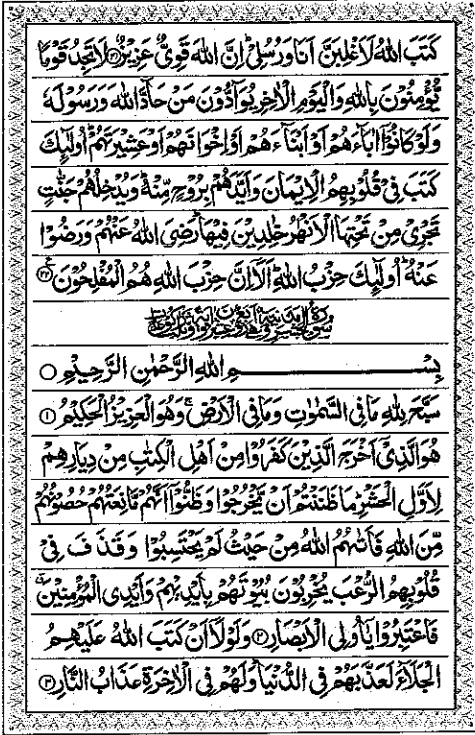 كَتَبَ اللّٰهُ لَاَغْلِبَنَّ اَنَا وَرُسُلِیْ ؕ اِنَّ اللّٰهَ قَوِیٌّ عَزِیْزٌ ۝۲۱ لَا تَجِدُ قَوْمًا
یُّؤْمِنُوْنَ بِاللّٰهِ وَالْیَوْمِ الْاٰخِرِ یُوَآدُّوْنَ مَنْ حَآدَّ اللّٰهَ وَرَسُوْلَهٗ
وَلَوْ كَانُوْۤا اٰبَآءَهُمْ اَوْ اَبْنَآءَهُمْ اَوْ اِخْوَانَهُمْ اَوْ عَشِیْرَتَهُمْ ؕ اُولٰٓئِكَ
كَتَبَ فِیْ قُلُوْبِهِمُ الْاِیْمَانَ وَاَیَّدَهُمْ بِرُوْحٍ مِّنْهُ ؕ وَیُدْخِلُهُمْ جَنّٰتٍ
تَجْرِیْ مِنْ تَحْتِهَا الْاَنْهٰرُ خٰلِدِیْنَ فِیْهَا ؕ رَضِیَ اللّٰهُ عَنْهُمْ وَرَضُوْا
عَنْهُ ؕ اُولٰٓئِكَ حِزْبُ اللّٰهِ ؕ اَلَاۤ اِنَّ حِزْبَ اللّٰهِ هُمُ الْمُفْلِحُوْنَ ۝۲۲
بِسْمِ اللّٰهِ الرَّحْمٰنِ الرَّحِیْمِ ۝
سَبَّحَ لِلّٰهِ مَا فِی السَّمٰوٰتِ وَمَا فِی الْاَرْضِ ۚ وَهُوَ الْعَزِیْزُ الْحَكِیْمُ ۝۱
هُوَ الَّذِیْۤ اَخْرَجَ الَّذِیْنَ كَفَرُوْا مِنْ اَهْلِ الْكِتٰبِ مِنْ دِیَارِهِمْ
لِاَوَّلِ الْحَشْرِ ؕ مَا ظَنَنْتُمْ اَنْ یَّخْرُجُوْا وَظَنُّوْۤا اَنَّهُمْ مَّانِعَتُهُمْ حُصُوْنُهُمْ
مِّنَ اللّٰهِ فَاَتٰىهُمُ اللّٰهُ مِنْ حَیْثُ لَمْ یَحْتَسِبُوْا ۗ وَقَذَفَ فِیْ
قُلُوْبِهِمُ الرُّعْبَ یُخْرِبُوْنَ بُیُوْتَهُمْ بِاَیْدِیْهِمْ وَاَیْدِی الْمُؤْمِنِیْنَ ۗ
فَاعْتَبِرُوْا یٰۤاُولِی الْاَبْصَارِ ۝۲ وَلَوْلَاۤ اَنْ كَتَبَ اللّٰهُ عَلَیْهِمُ
الْجَلَآءَ لَعَذَّبَهُمْ فِی الدُّنْیَا ؕ وَلَهُمْ فِی الْاٰخِرَةِ عَذَابُ النَّارِ ۝۳